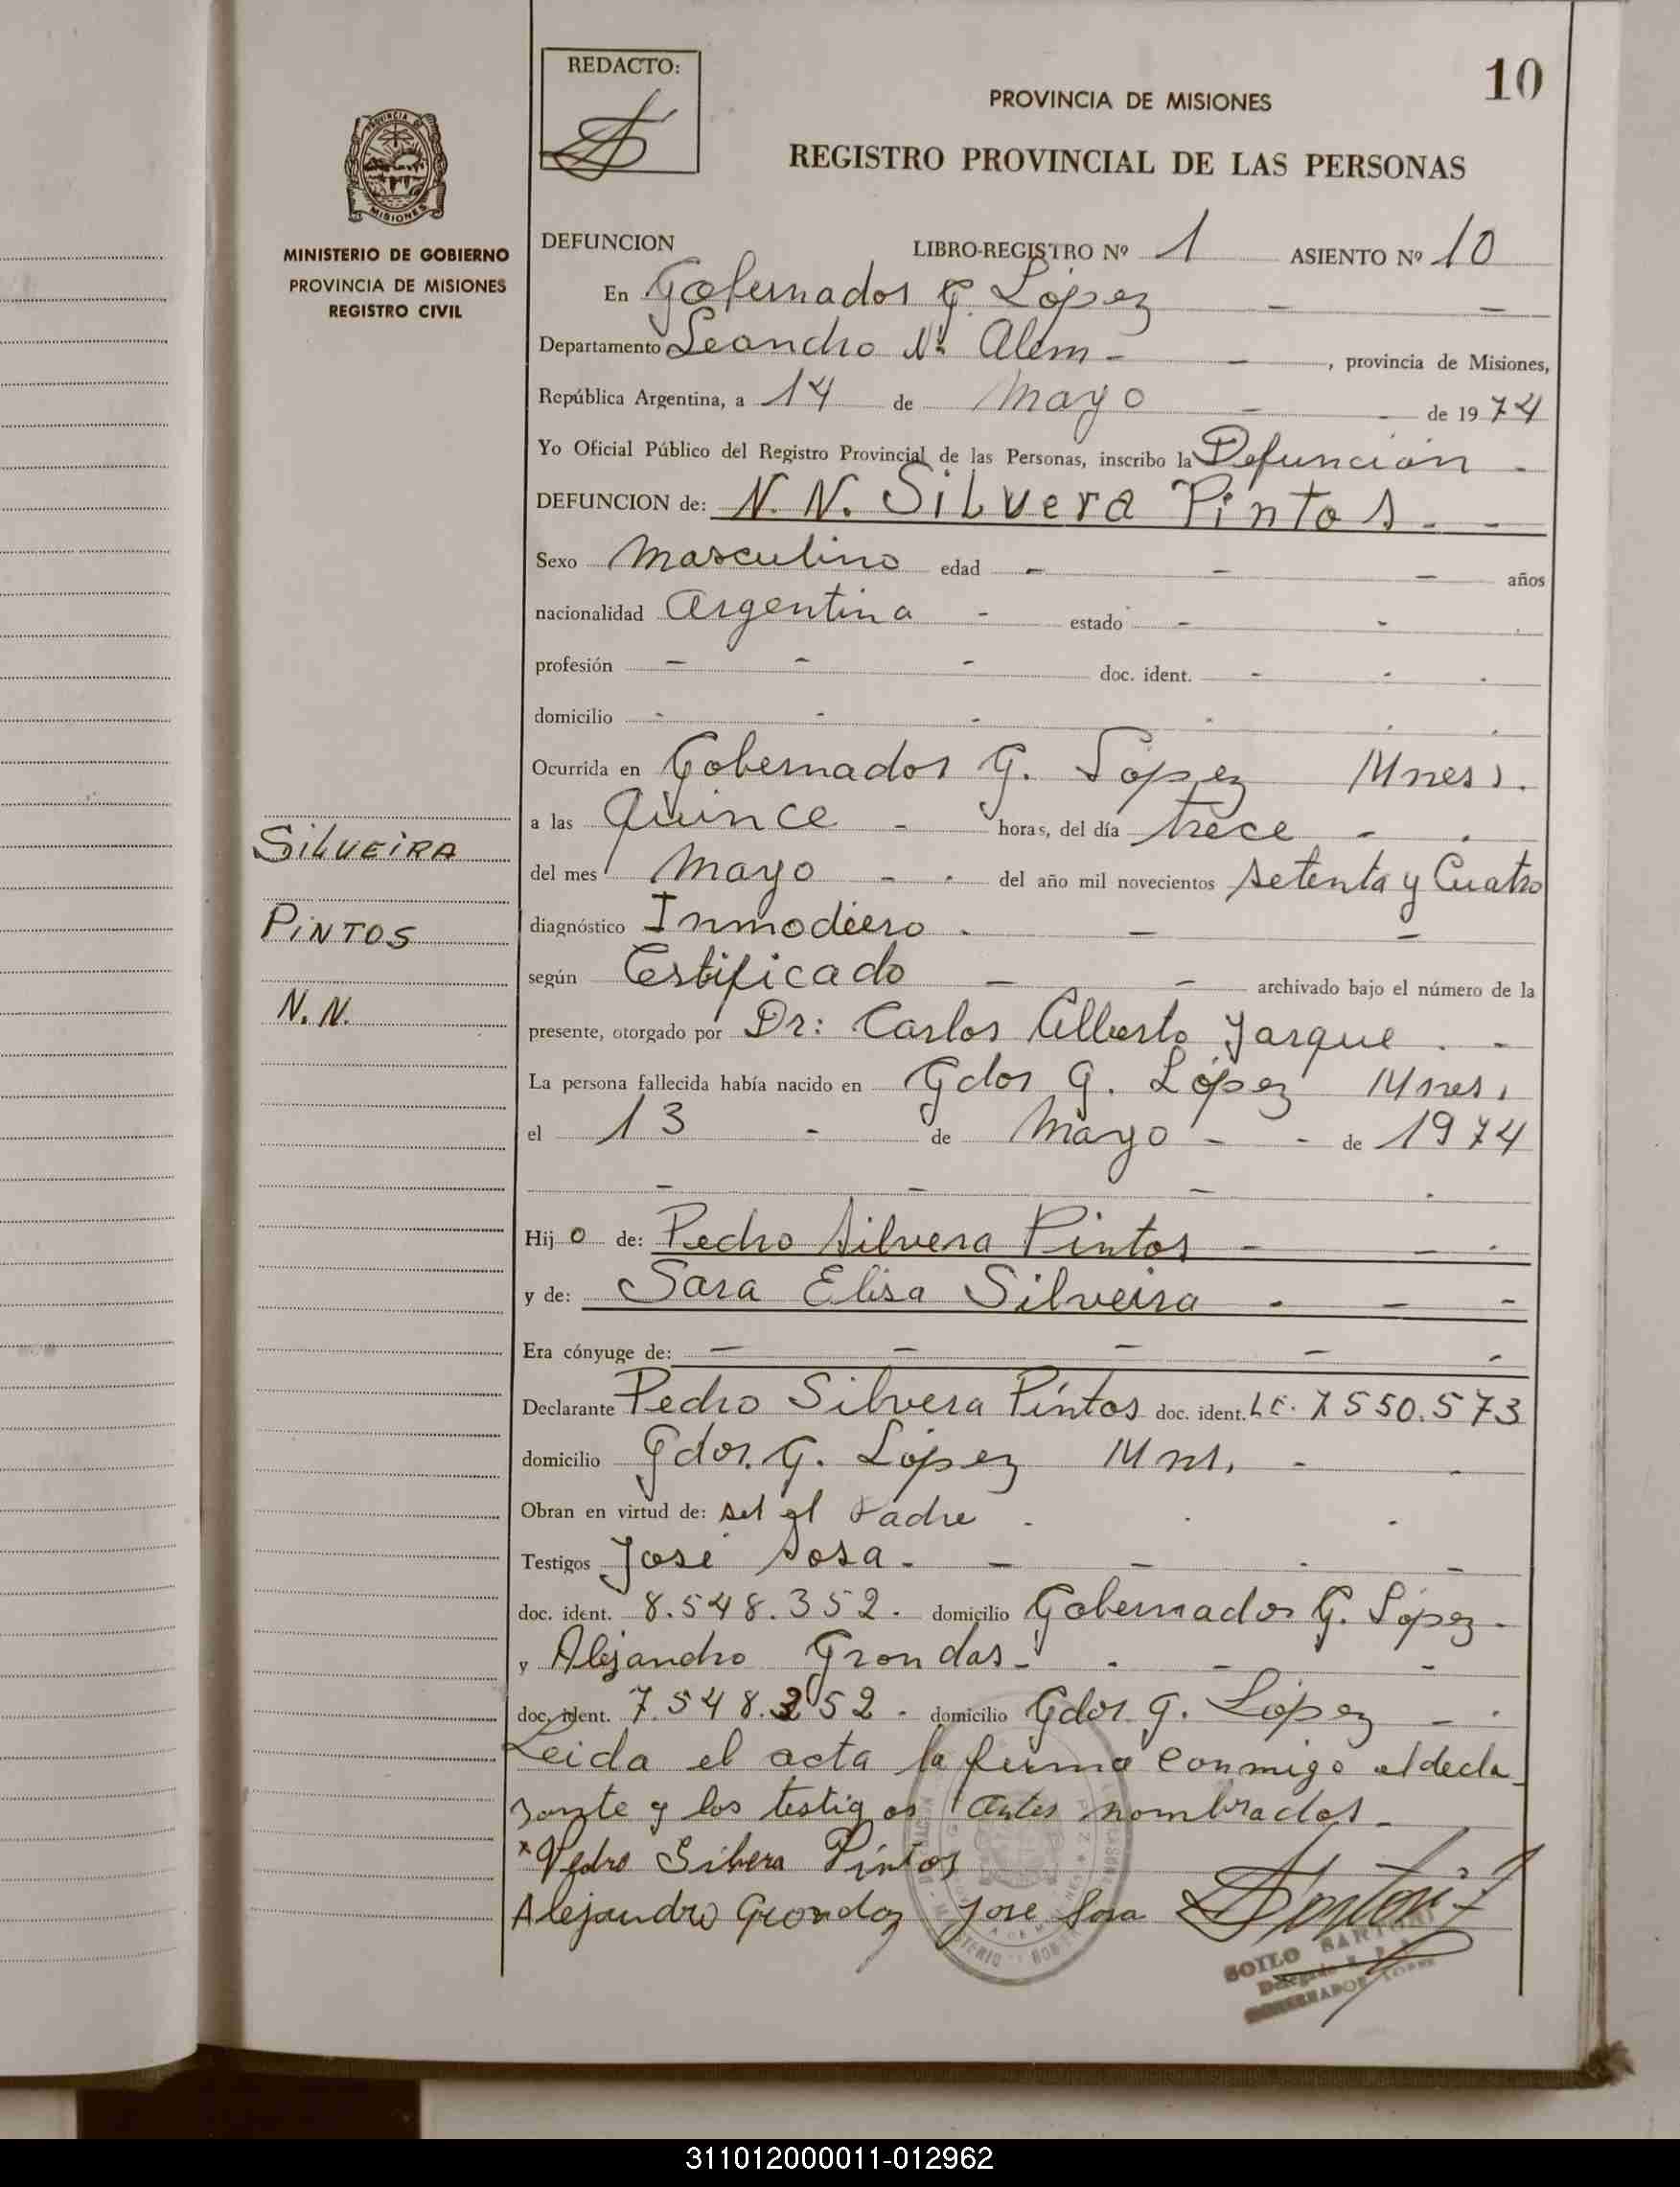 REDACTO:
10
PROVINCIA DE MISIONES
REGISTRO PROVINCIAL DE LAS PERSONAS
PROVINCIA DE
MISIONES
MINISTERIO DE GOBIERNO
PROVINCIA DE MISIONES
REGISTRO CIVIL
DEFUNCION LIBRO-REGISTRO Nº 1 ASIENTO Nº 10
En Gobernador G. López - -
Departamento Leandro N. Alem - - , provincia de Misiones,
República Argentina, a 14 de Mayo - - de 1974
Yo Oficial Público del Registro Provincial de las Personas, inscribo la Defunción -
DEFUNCION de: N. N. Silvera Pintos - -
Sexo Masculino edad - - - años
nacionalidad Argentina - estado - -
profesión - - - doc. ident. - - -
domicilio - - - - - -
Ocurrida en Gobernador G. López Mnes.
a las Quince - horas, del día trece - -
del mes Mayo - - del año mil novecientos setenta y Cuatro
diagnóstico - -
según Certificado - - archivado bajo el número de la
presente, otorgado por Dr: Carlos Alberto Jarque - -
La persona fallecida había nacido en Gdor G. López Mnes.
el 13 - de Mayo - - de 1974
- - - -
Hijo de: Pedro Silvera Pintos - - -
y de: Sara Elisa Silveira - - -
Era cónyuge de: - - - - -
Declarante Pedro Silvera Pintos doc. ident. L.E. 7550.573
domicilio Gdor. G. López Mns. - -
Obran en virtud de: ser el Padre - - -
Testigos José Sosa - - - - -
doc. ident. 8.548.352. domicilio Gobernador G. López -
y Alejandro Grondas - - - -
doc. ident. 7.548.252 - domicilio Gdor G. López - -
Leida el acta la firma conmigo el decla
rante y los testigos antes nombrados -
Pedro Silvera Pintos
Alejandro Grondas José Sosa
SOILO
SILVEIRA
PINTOS
N. N.
311012000011-012962